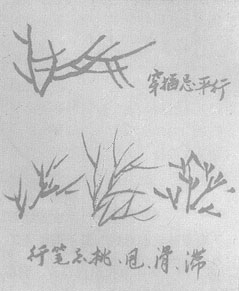 穿插忌平行
行笔忌挑、甩、滑、滞